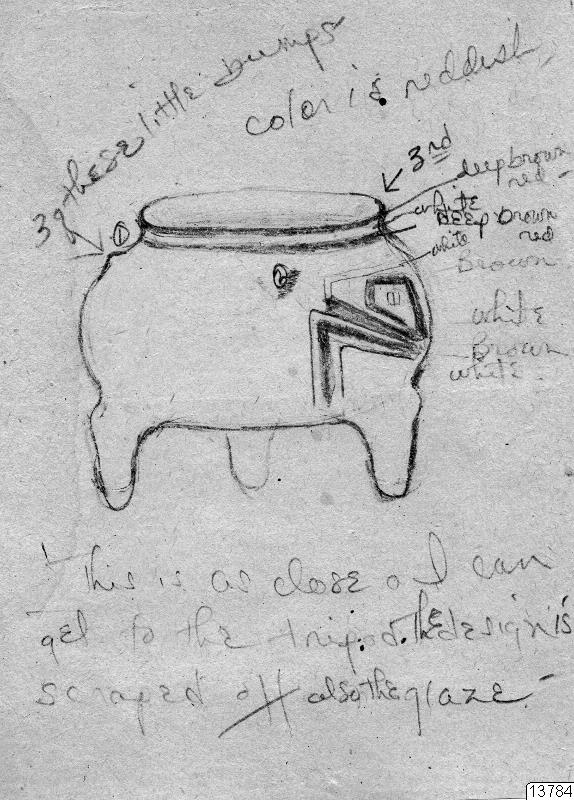 3 of these little bumps
color is reddish
3rd
deep brown
red
white
deep brown
red
white
Brown
white
Brown
white
1
2
This is as close as I can
get to the tripod. the design is
scraped off also the glaze
13784